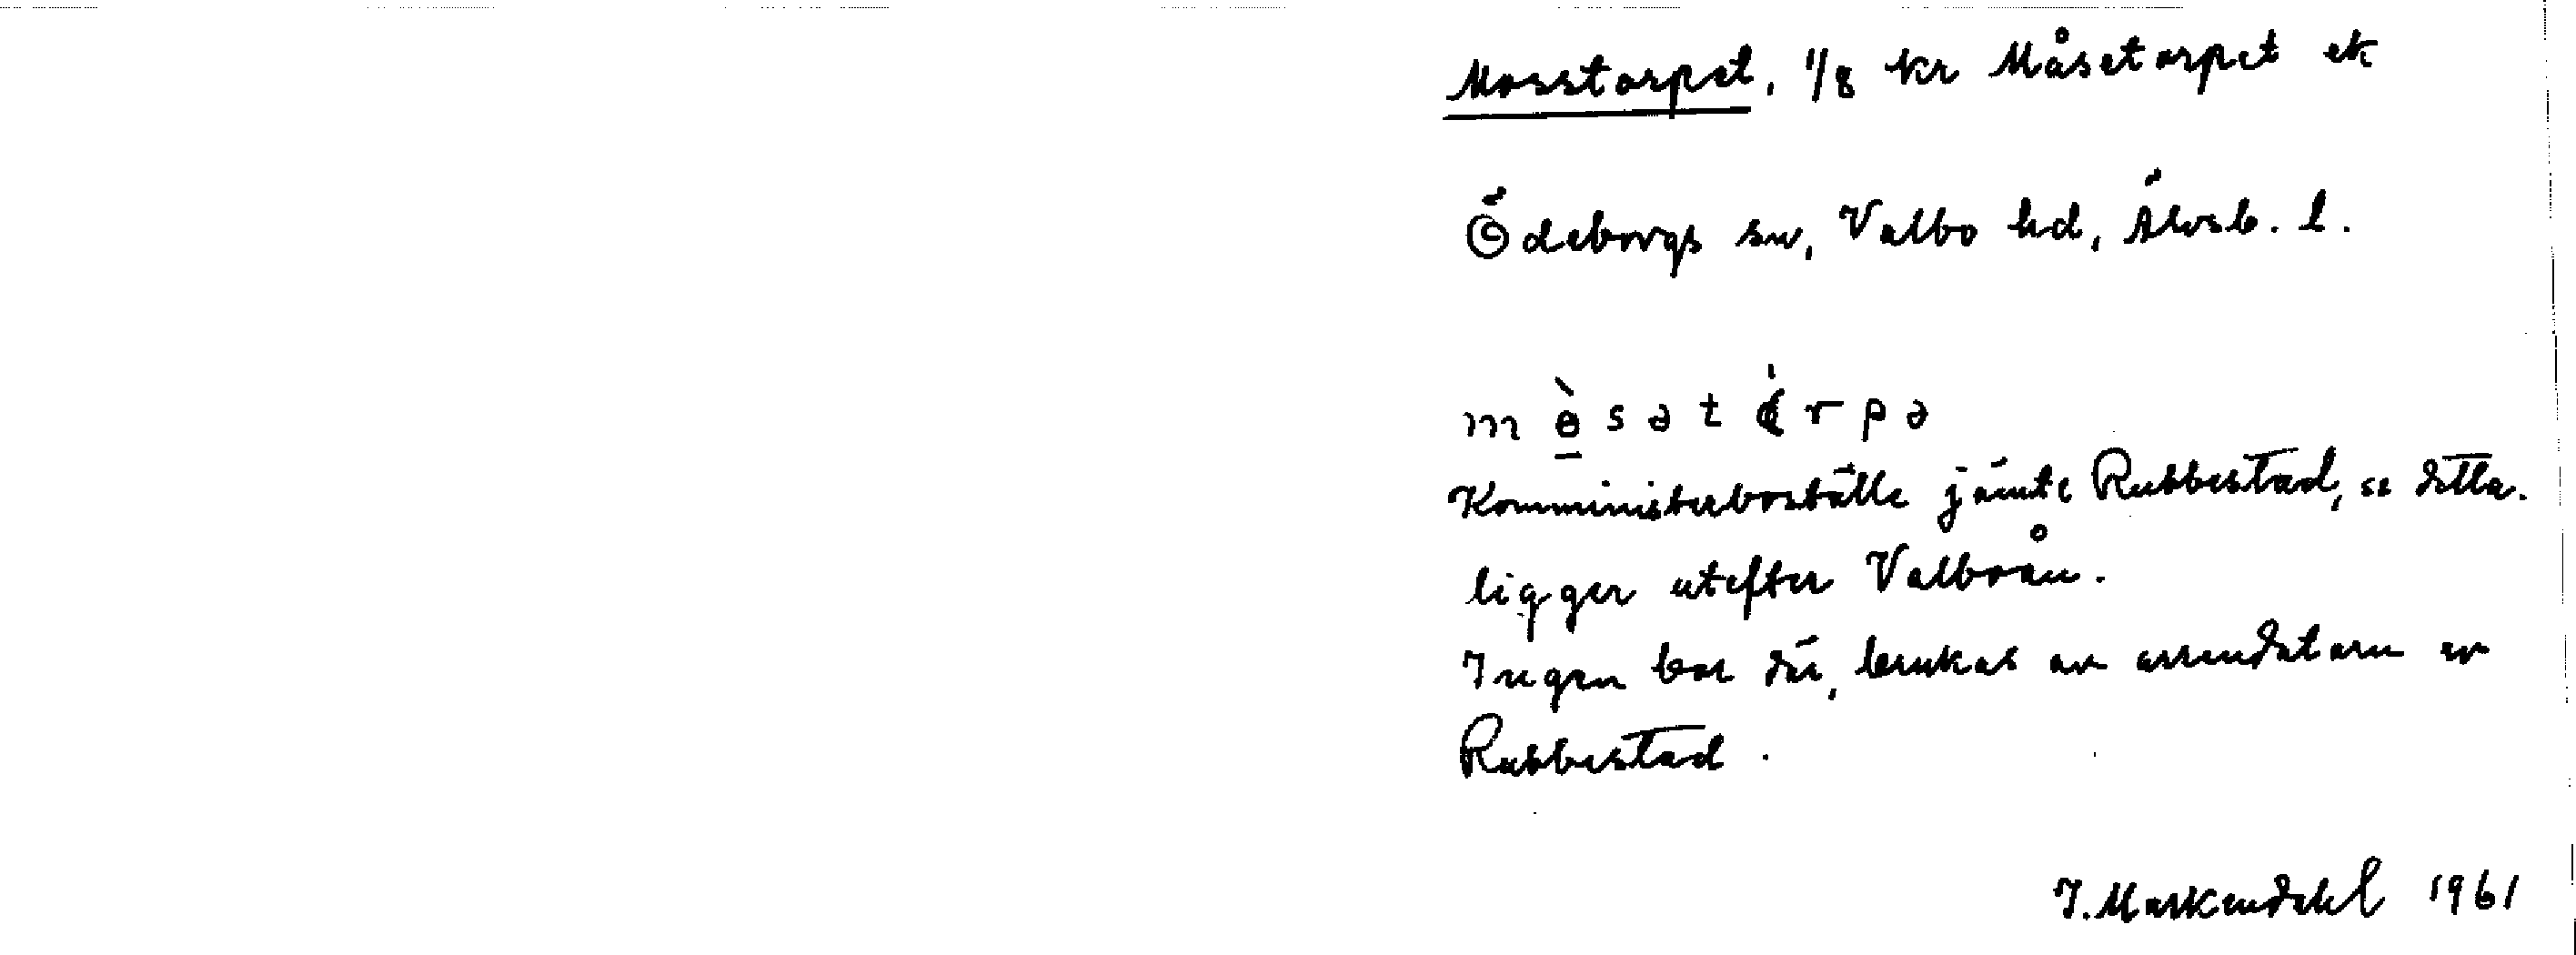 Mosstorpet, 1/8 kr Måsetorpet ek
Ödeborgs sn, Valbo hd, Älvsb. l.
m è s ə t ó r p ə
Komministerboställe jämte Rubbestad, se detta.
ligger utefter Valboån.
Ingen bor där, brukas av arrendatorn av
Rubbestad.
I. Markendahl 1961